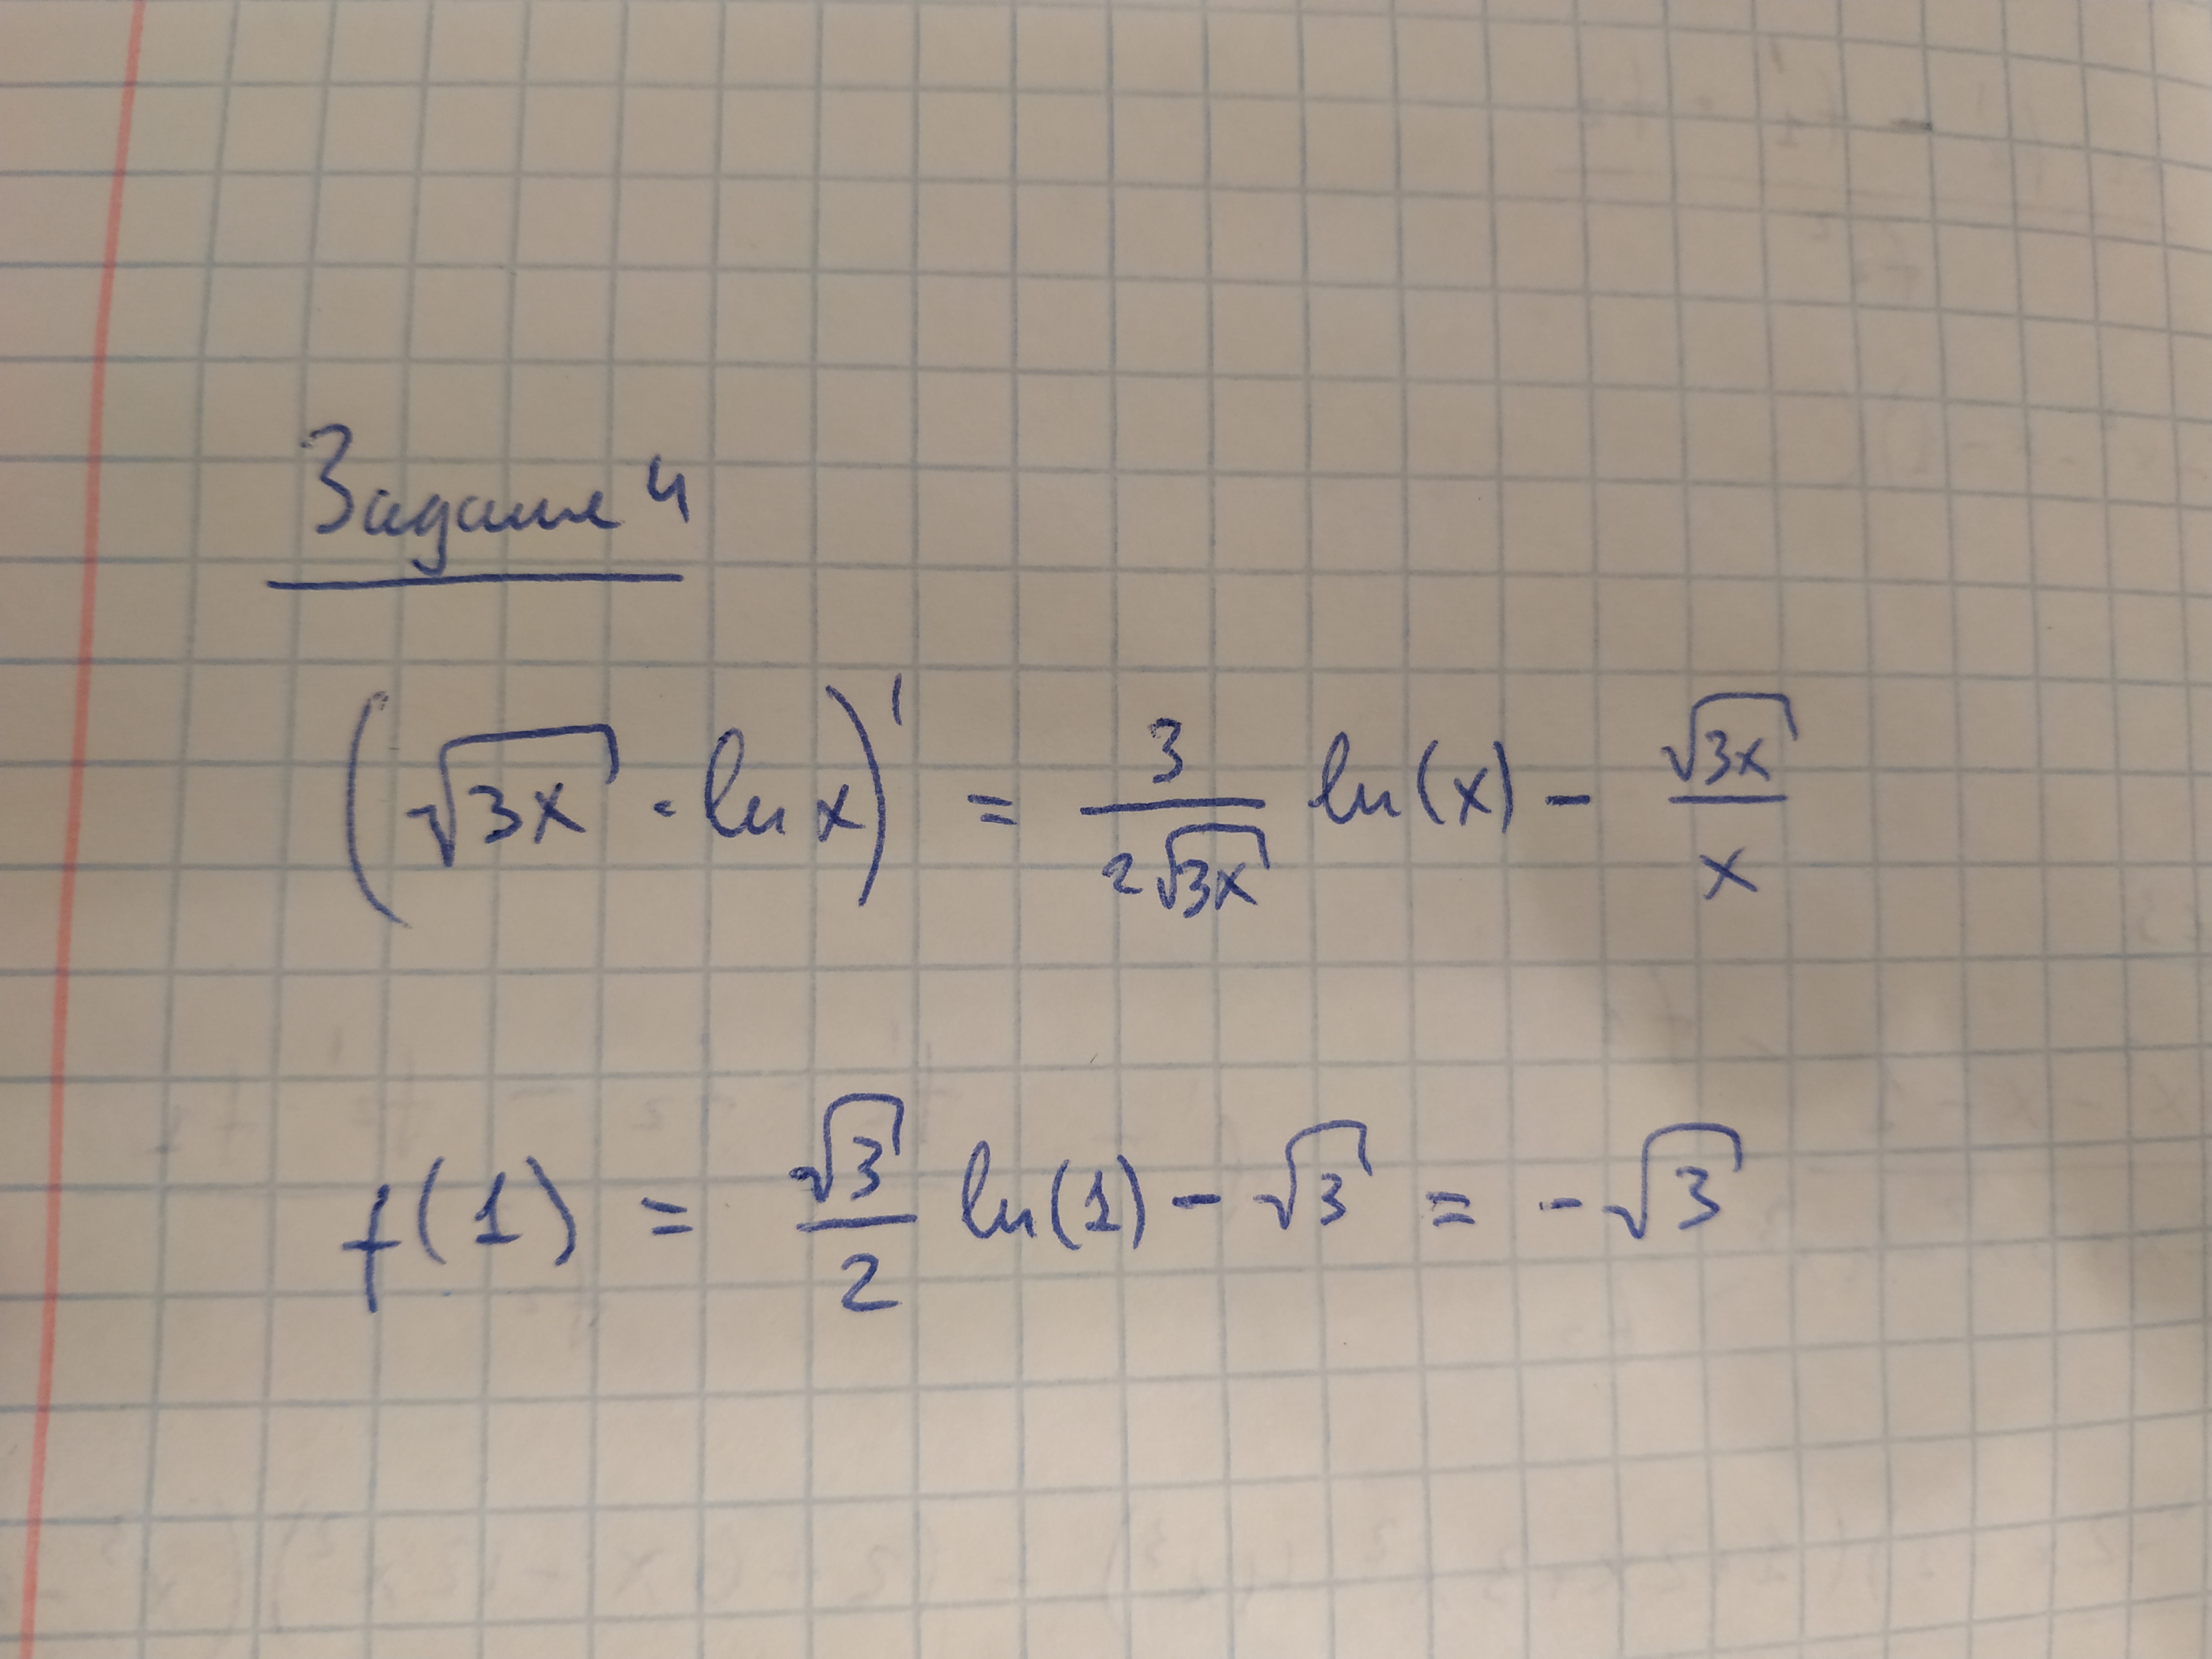 Задание 4
(√3x · ln x)' = 3/(2√3x) ln(x) - √3x/x
f(1) = √3/2 ln(1) - √3 = -√3